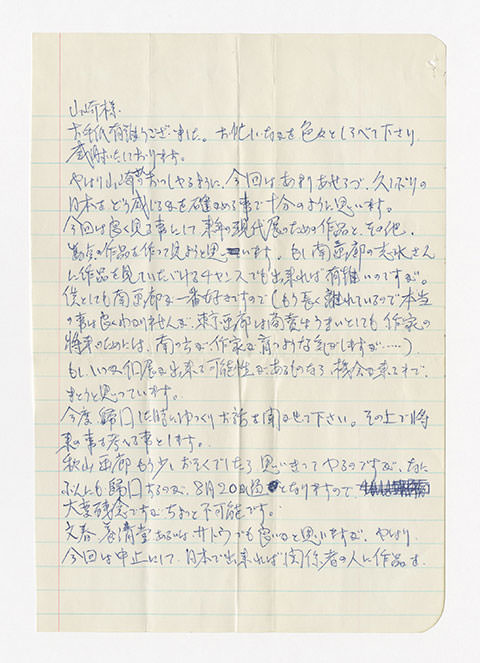 山崎様
お手紙有難うございました。お忙しい なかを色々としらべて下さり
感謝いたしております。
やはり山崎さんのおっしゃるように、今回はあまりあせらづ、久しぶりの
日本をどう感じるかを確かめる事で十分のように思います。
今回は良く見る事にして来年の現代展のための作品と、その他、
数点の作品を作って見ようと思います。もし南画廊の志水さん
に作品を見ていただけるチャンスでも出来れば有難いのですが。
僕としても南画廊を一番好きですので(もう長く離れているので本当
の事は良くわかりませんが、東京画廊は商売はうまいとしても作家の
将来のためには、南の方が作家が育つような気がしますが……)
もし、いつか個展が出来る可能性があるものなら、機会が来るまで、
まとうと思っています。
今度帰国した時にゆっくりお話を聞かせて下さい。その上で将
来の事を考える事とします。
秋山画廊もう少しおそくでしたら思いきってやるのですが、なに
ぶんにも帰国するのが、8月20日頃となりますので
大変残念ですがちょっと不可能です。
文春、春清堂あるいはサトウでも良いかと思いますが、やはり
今回は中止にして、日本で出来れば関係者の人に作品を